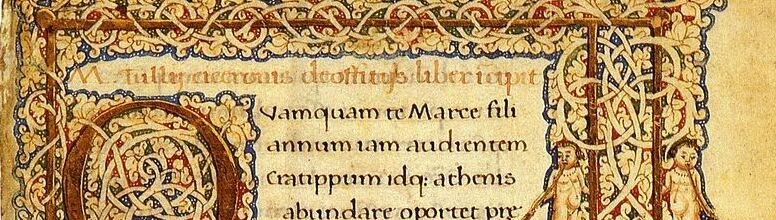 M. tullij ciceronis de offitijs liber īcipit
Quamquam te Marce fili
annum iam audientem
cratippum idq: athenis
abundare oportet pre